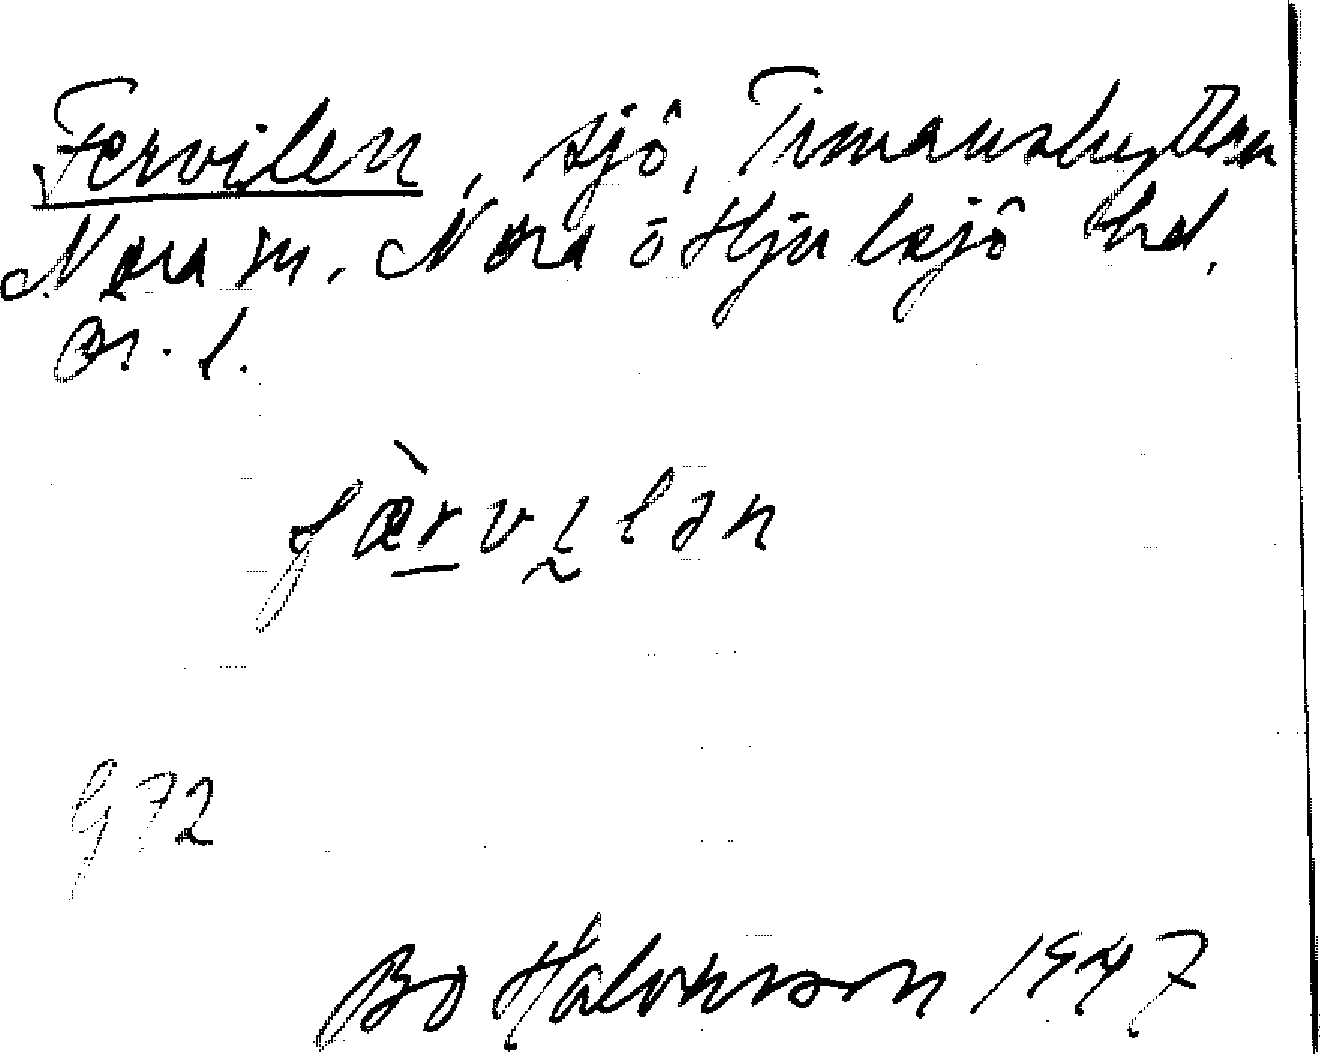 Fervilen, sjö, Timanshyttan
Nora sn. Nora o Hjulsjö hd.
Ör. l.
fæ̀rvı̰lən
G 72
Bo Halvarsson 1947